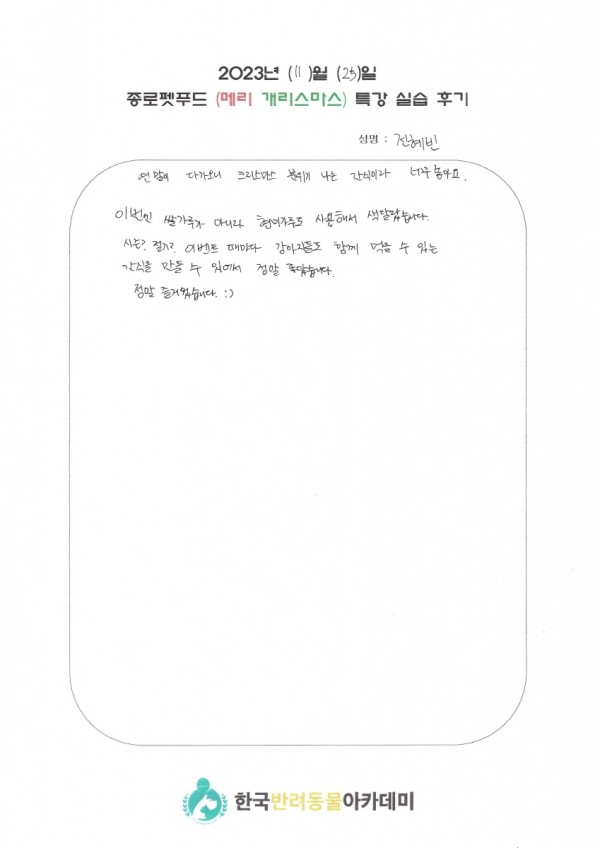 2023년 (11)월 (25)일
종로펫푸드 (메리 개리스마스) 특강 실습 후기
성명 : 전혜빈
연말에 다가오니 크리스마스 분위기 나는 간식이라 너무 좋아요.
이번엔 쌀가루가 아니라 현미가루도 사용해서 색달랐습니다.
시즌? 절기? 이벤트 때마다 강아지들도 함께 먹을 수 있는
간식을 만들 수 있어서 정말 좋습니다.
정말 즐거웠습니다. :)
한국반려동물아카데미